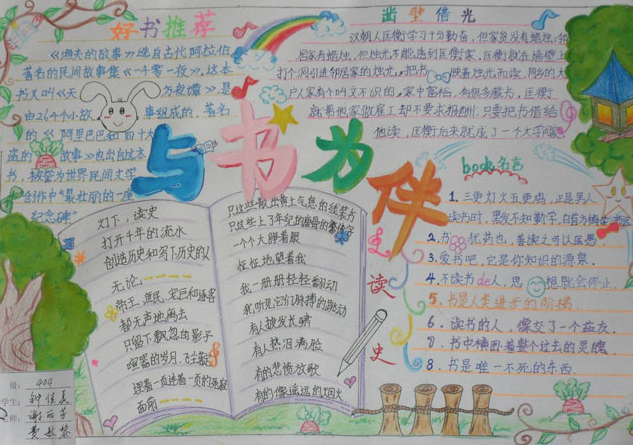 好书推荐
《渔夫的故事》选自古代阿拉伯
著名的民间故事集《一千零一夜》,这本
书又叫《天方夜谭》,是
由264个小故事组成的,著名
的《阿里巴巴和四十大
盗的故事》也出自这本
书,被誉为世界民间文学
创作中“最壮丽的一座
纪念碑”
凿壁借光
汉朝人匡衡学习十分勤奋,但家贫没有蜡烛,邻
居家有蜡烛,但烛光不能达到匡衡家,匡衡就在墙壁上
打个洞引进邻居家的烛光,把书映着烛光而读,同乡的大
户人家有个叫文不识的,家中富裕,有很多藏书,匡衡
就帮他家做雇工却不要求报酬;只要把书借给
他读,匡衡后来就成了一个大学者
与书为伴
灯下,读史
打开千年的流水
创造历史和写下历史的人
无论
帝王、庶民、宠臣和逐客
都无声地离去
只留下飘忽的影子
喧嚣的岁月,飞尘歇
踩着一页连着一页的
面前
只这些散出黄土气息的线装书
只这些上了年纪的
一个大
怔怔地望着我
我一册册轻轻翻动
我听见它们脉搏的跳动
有人披发长啸
有人热泪满脸
有的悲愤放歌
有的像遥远的烟火
读史
book名言
1.三更灯火五更鸡,正是男人
读书时,黑发不知勤学早,白首方悔
2.书犹药也,善读之可以医愚
3.爱书吧,它是你知识的源泉。
4.不读书de人,思想就会停止.
5.书是人类进步的阶梯.
6.读书的人,像交了一个益友.
7.书中横卧着整个过去的灵魂.
8.书是唯一不死的东西.
级:404
学生:钟佳
师:谢